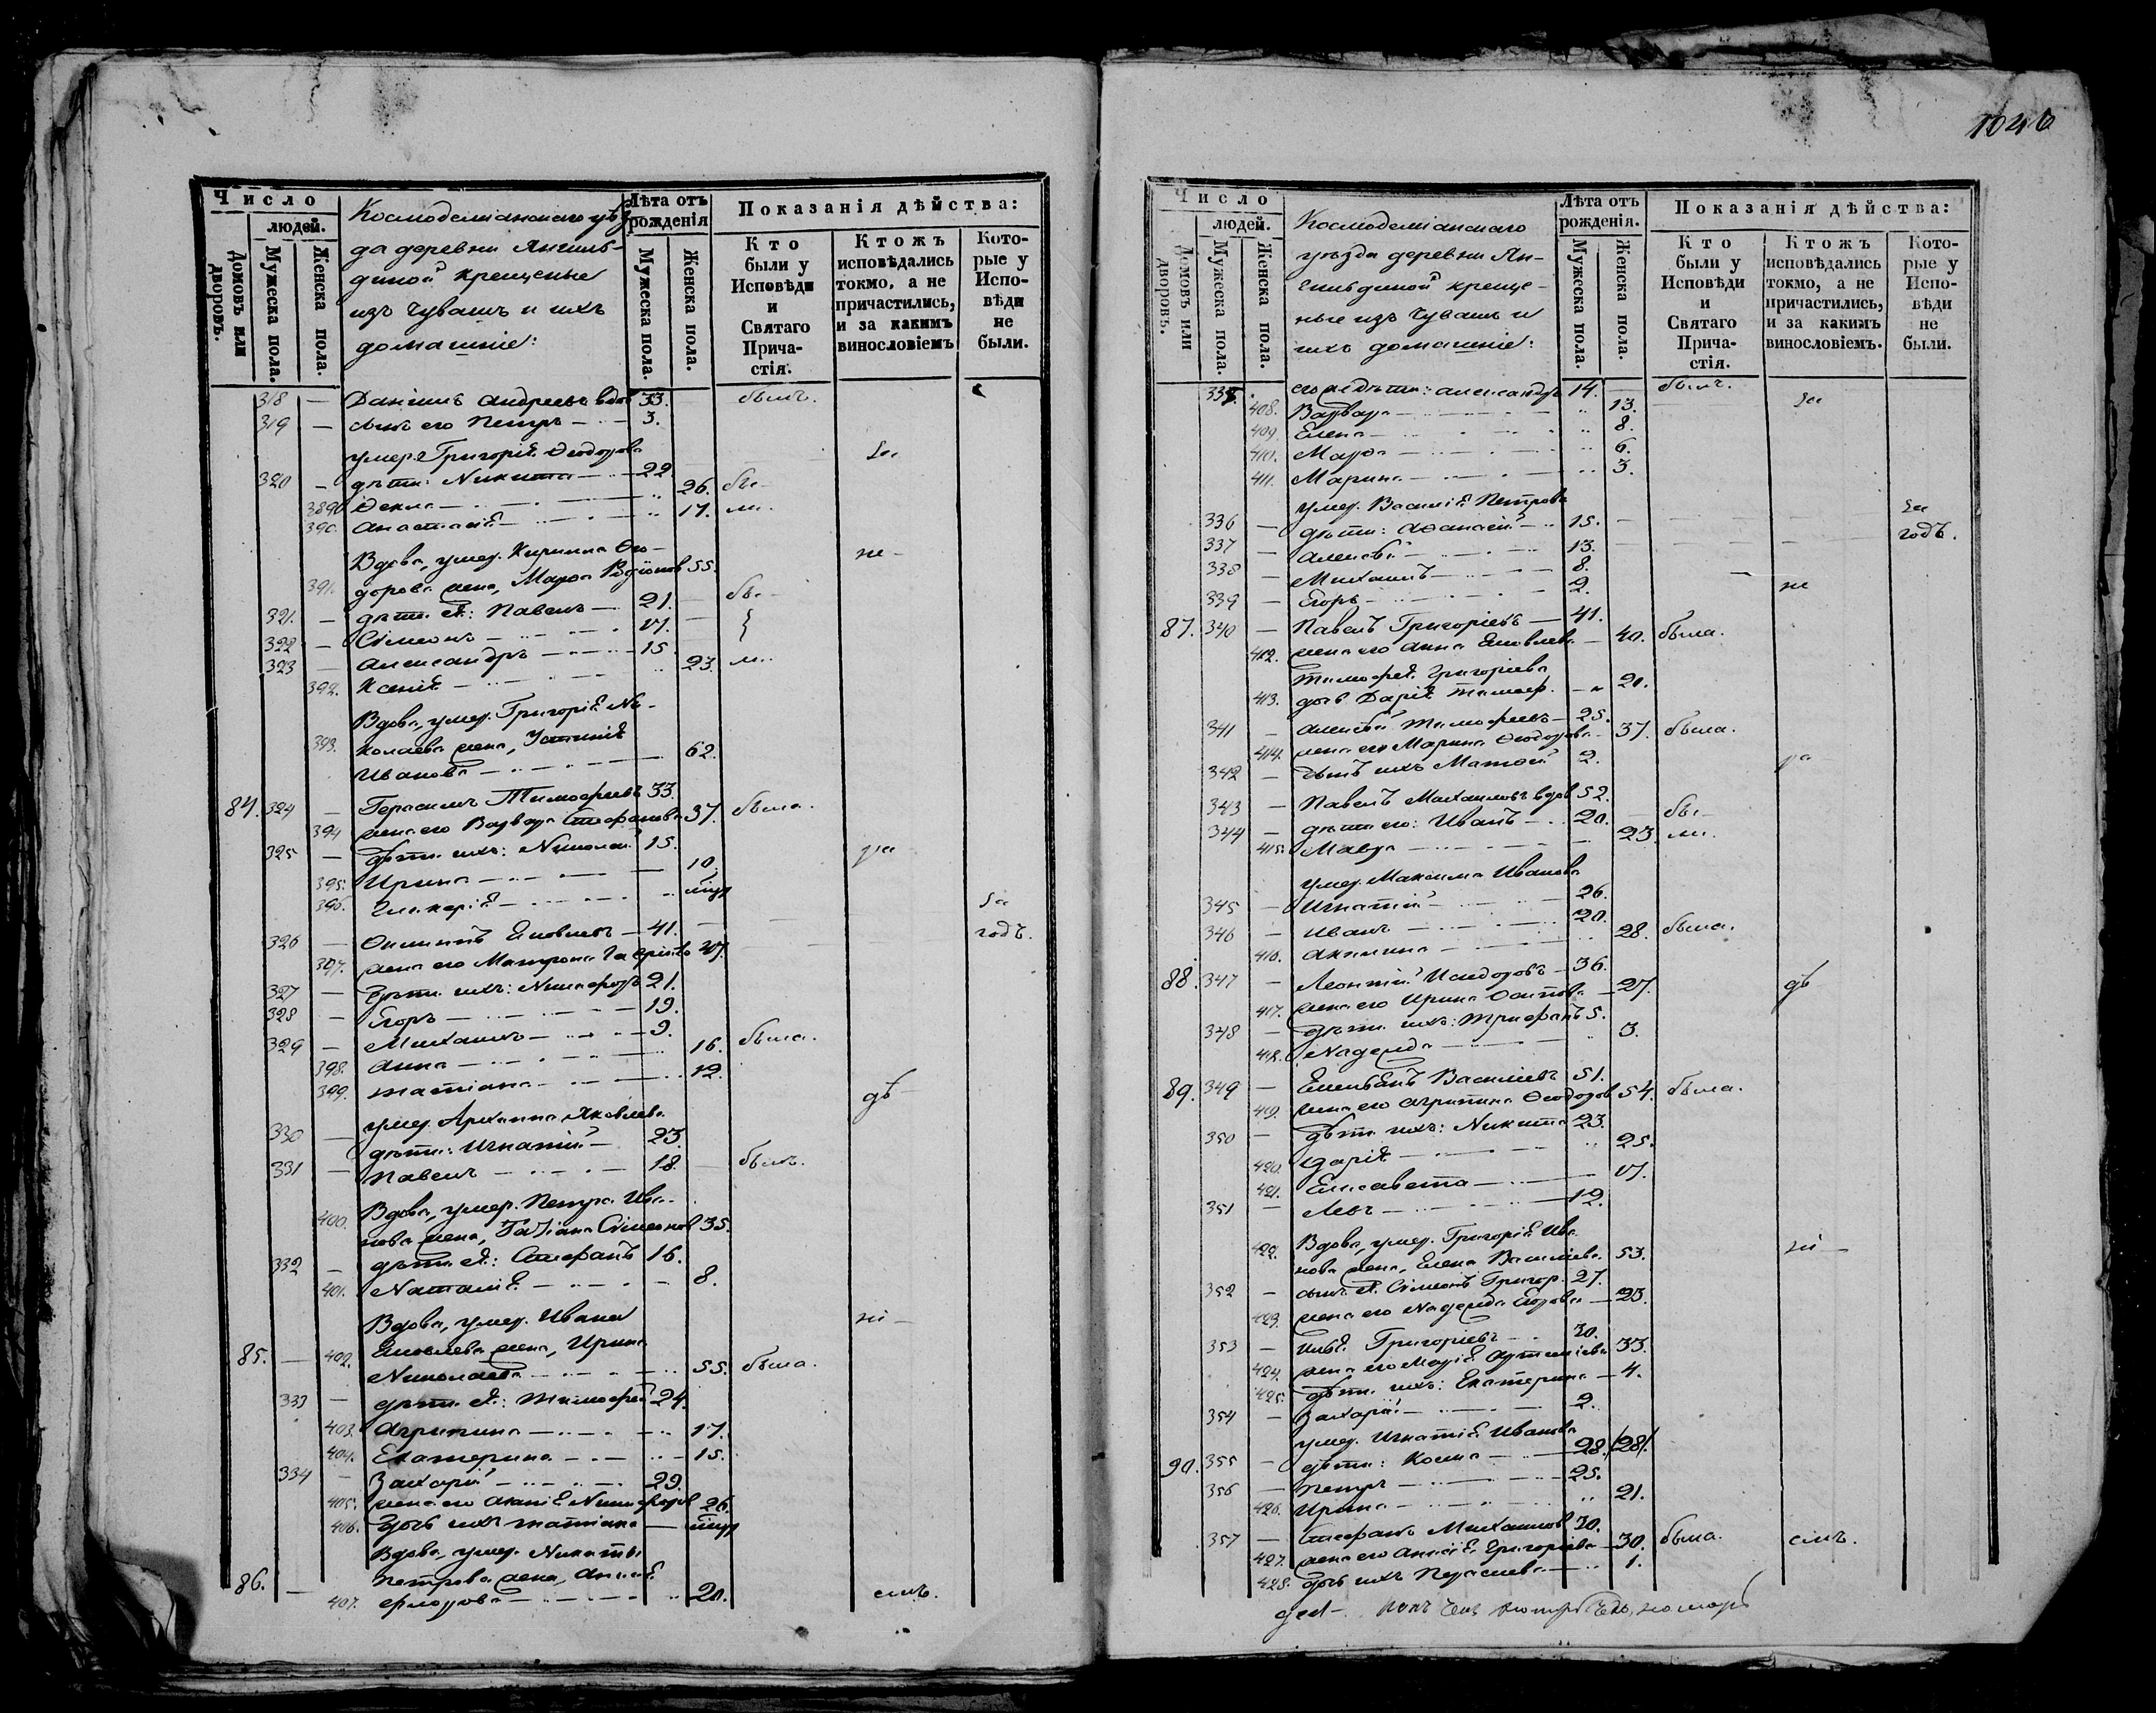 1046
Число
людей.
Домовъ или дворовъ.
Мужеска пола.
Женска пола.
Космодемианскаго уѣз-
да деревни Янгиль-
диной крещеные
изъ Чувашъ и ихъ
домашніе:
Лѣта отъ рожденія
Мужеска пола.
Женска пола.
Показанія дѣйства:
Кто были у Исповѣди и Святаго Причастія.
Ктожъ исповѣдались токмо, а не причастились, и за какимъ винословіемъ
Которые у Исповѣди не были.
318 — Даніилъ Андреевъ вдов 33. былъ.
319 — сынъ его Петръ — 3.
умер. Григорія Ѳеодорова за
320 — дѣти: Никита — 22
Ѳекла — 26. бы-
390. Анастасія — 17. ли.
Вдова, умер. Кирилла Ѳео- не-
391. дорова жена, Марѳа Родіонов 55.
321. — дѣти ея: Павелъ — 21. бы-
322 — Сімеонъ — 17.
323 — Александръ — 15.
392. Ксенія — 23. ли.
Вдова, умер. Григорія Ни-
393. колаева жена, Устинія
Иванова — 62.
84. 324 — Герасимъ Тимофеевъ 33.
394 жена его Варвара Стефанова 37. была.
325 — дѣти ихъ: Николай 15. ра
395. Ирина — 10.
396. Гликерія — за
326 — Филиппъ Яковлевъ — 41. годъ.
397. жена его Матрона Гаврило
327 — дѣти ихъ: Никифоръ 21.
328 — Егоръ — 19.
329 — Михаилъ — 9.
398. Анна — 16. была.
399. Татіана — 12. дѣ-
умер. Архиппа Яковлева
330 — дѣти: Игнатій — 23.
331 — Павелъ — 18. былъ.
Вдова, умер. Петра Ива-
400. нова жена, Татіана Сімеонов 35.
332 — дѣти ея: Стефанъ 16.
401. Наталія — 8.
Вдова, умер. Ивана ні-
85. — 402. Яковлева жена, Ирина
Николаева — 55. была.
333 — дѣти ея: Тимофей 24.
403. Агрипина — 17.
404. Екатерина — 15.
334 — Захарій — 29.
405. жена его Никифоров 26.
406. дочь ихъ Татіана —
Вдова, умер. Никиты
86. — Петрова жена,
407. Фролова — 20. емъ.
Число
людей.
Домовъ или дворовъ.
Мужеска пола.
Женска пола.
Космодемианскаго
уѣзда деревни Ян-
гильдиной креще-
ные изъ Чувашъ и
ихъ домашніе:
Лѣта отъ рожденія.
Мужеска пола.
Женска пола.
Показанія дѣйства:
Кто были у Исповѣди и Святаго Причастія.
Ктожъ исповѣдались токмо, а не причастились, и за какимъ винословіемъ.
Которые у Исповѣди не были.
335. дѣти: Александръ 14. — былъ.
408. Варвара — 13. за
409. Елена — 8.
410. Марѳа — 6.
411. Марина — 3.
умер. Василія Петрова за
336 — дѣти: Аѳанасій — 15. годъ.
337 — Алексѣй — 13.
338 — Михаилъ — 8.
339 — Егоръ — 2. не
87. 340 — Павелъ Григоріевъ — 41.
412. жена его Анна Яковлева — 40. была.
Тимофея Григоріева
413. дочь Дарія Тимоф. — 20.
341 — Алексѣй Тимофеевъ — 25.
414. жена его Марина Ѳеодорова — 37. была.
342 — сынъ ихъ Матѳей 2. ра
343 — Павелъ Михаиловъ вдов 52.
344 — дѣти его: Иванъ — 20. бы-
415. Мавра — 23. ли.
умер. Максима Иванова
345 — Игнатій — 26.
346 — Иванъ — 20.
416. Акилина — 28. была.
88. 347 — Леонтій Исидоровъ — 36.
417. жена его Ирина Осипова — 27. дѣ
348 — дѣти ихъ: Трифанъ 5.
418. Надежда — 3.
89. 349 — Емельянъ Василіевъ 51.
419. жена его Агрипина Ѳеодоров 54. была.
350 — дѣти ихъ: Никита 23.
420. Дарія — 25.
421. Елисавета — 17.
351 — Левъ — 12.
422. Вдова, умер. Григорія Ива-
нова жена, Елена Василіева 53. ні —
352 — сынъ ея Сімеонъ Григор. 27.
423. жена его Надежда Егорова — 23.
353 — Илья Григоріевъ — 30.
424. жена его Марія 33.
425. дѣти ихъ: Екатерина — 4.
354 — Захарій — 2.
умер. Игнатія Иванова
90. 355 — дѣти: Косма — 28.
356 — Петръ — 25.
426. Ирина — 21.
357 — Стефанъ Михаилов 30.
427. жена его Григоріева — 30. была. емъ.
428. дочь ихъ — 1.